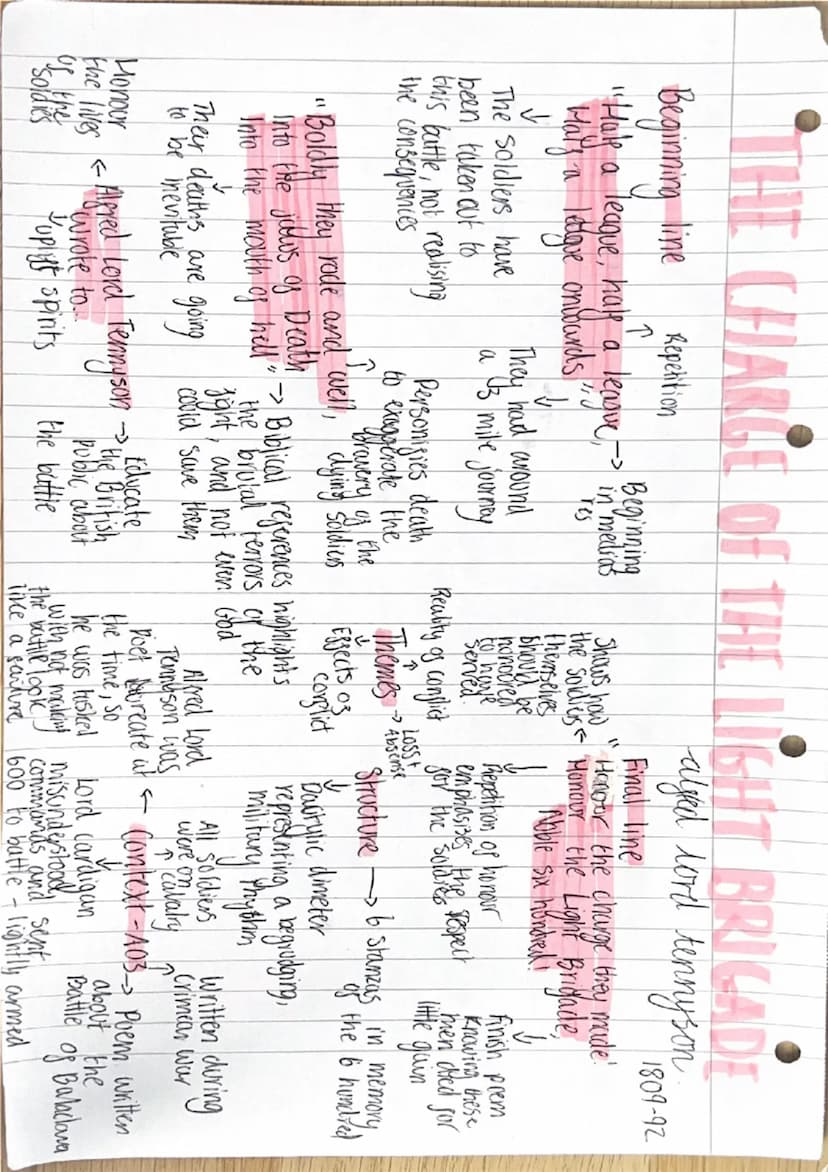 THE CHARGE OF THE LIGHT BRIGADE
alfred lord tennyson.
1809-92
Beginning line
Repetition
"Half a league, half a league,
Half a league onwards,"
→ Beginning
in medias
res
The soldiers have
been taken out to
this battle, not realising
the consequences
They had around
a 1/3 mile journey
"Boldly they rode and well,
Into the jaws of Death
Into the mouth of hell"
Personifies death
to exaggerate the
bravery of the
dying soldies
→ Biblical references highlights
the brutal terrors of the
fight, and not even God
could save them
Their deaths are going
to be inevitable
Alfred Lord Tennyson
wrote to...
Honour
the lives
of the
soldies
uplift spirits
→ Educate
the British
public about
the battle
Final line
"Honour the charge they made!
Honour the Light Brigade,
Noble six hundred!
Shows how
the soldies
themselves
should be
honored
to have
served.
Repetition of honour
emphasizes the respect
for the soldies
Finish poem
knowing these
men died for
little gain
Reality of conflict
Themes
→ Loss +
Absense
Effects of
conflict
Structure → 6 stanzas in memory
of the 6 hundred
Dactylic dimeter
representing a begudging,
military rhythm
Context - A03 → Poem written
about the
Battle of Balaclava
All soldiers
were on
cavalry
Written during
crimean war
Alfred Lord
Tennyson was
Poet laureate at
the time, so
he was tasked
with not making
the battle look
like a failure
Lord cardigan
misunderstood
commands and sent
600 to battle - lightly armed